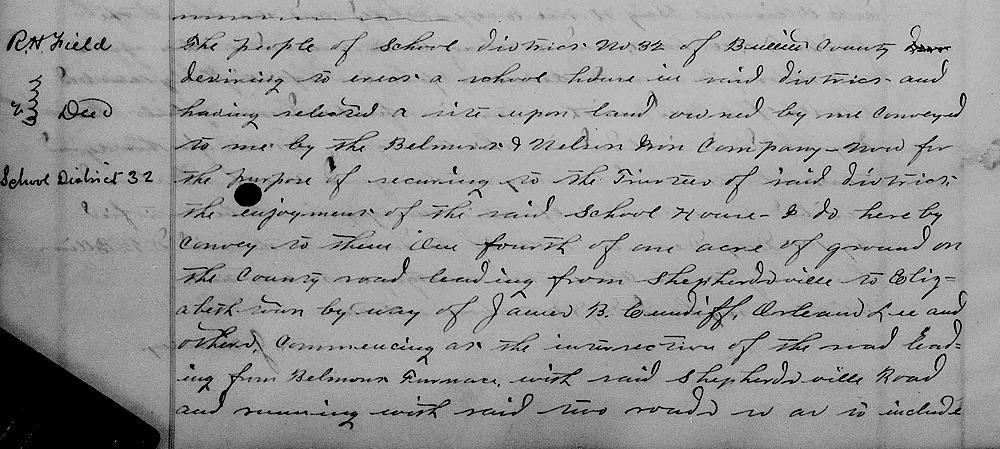 R H Field
The people of School district No 32 of Bullitt County
desiring to erect a school house in said district and
Deed
having selected a site upon land owned by me conveyed
to me by the Belmont & Nelson Iron Company - Now for
School District 32
the purpose of securing to the Trustees of said district
the enjoyment of the said School House - I do hereby
convey to them one fourth of one acre of ground on
the County road leading from Shepherdsville to Eliz=
abeth town by way of James B. Cundiff, Orleand Lee and
others, Commencing at the intersection of the road lead=
ing from Belmont Furnace, with said Shepherdsville Road
and running with said two roads so as to include